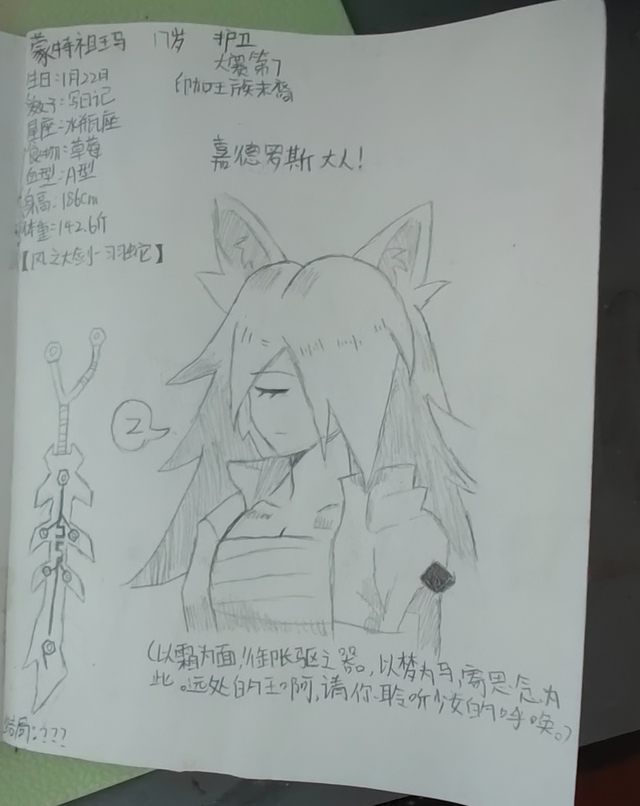 蒙特祖玛 17岁 护卫
大赛第7
印加王族末裔
生日:1月22日
爱好:写日记
星座:水瓶座
食物:草莓
血型:A型
身高:186cm
体重:142.6斤
【风之大剑-羽蛇】
嘉德罗斯大人!
Z
(以霜为面,御长驱之器。以梦为马,寄思念为
此。远处的王啊,请你聆听少女的呼唤。)
结局:???